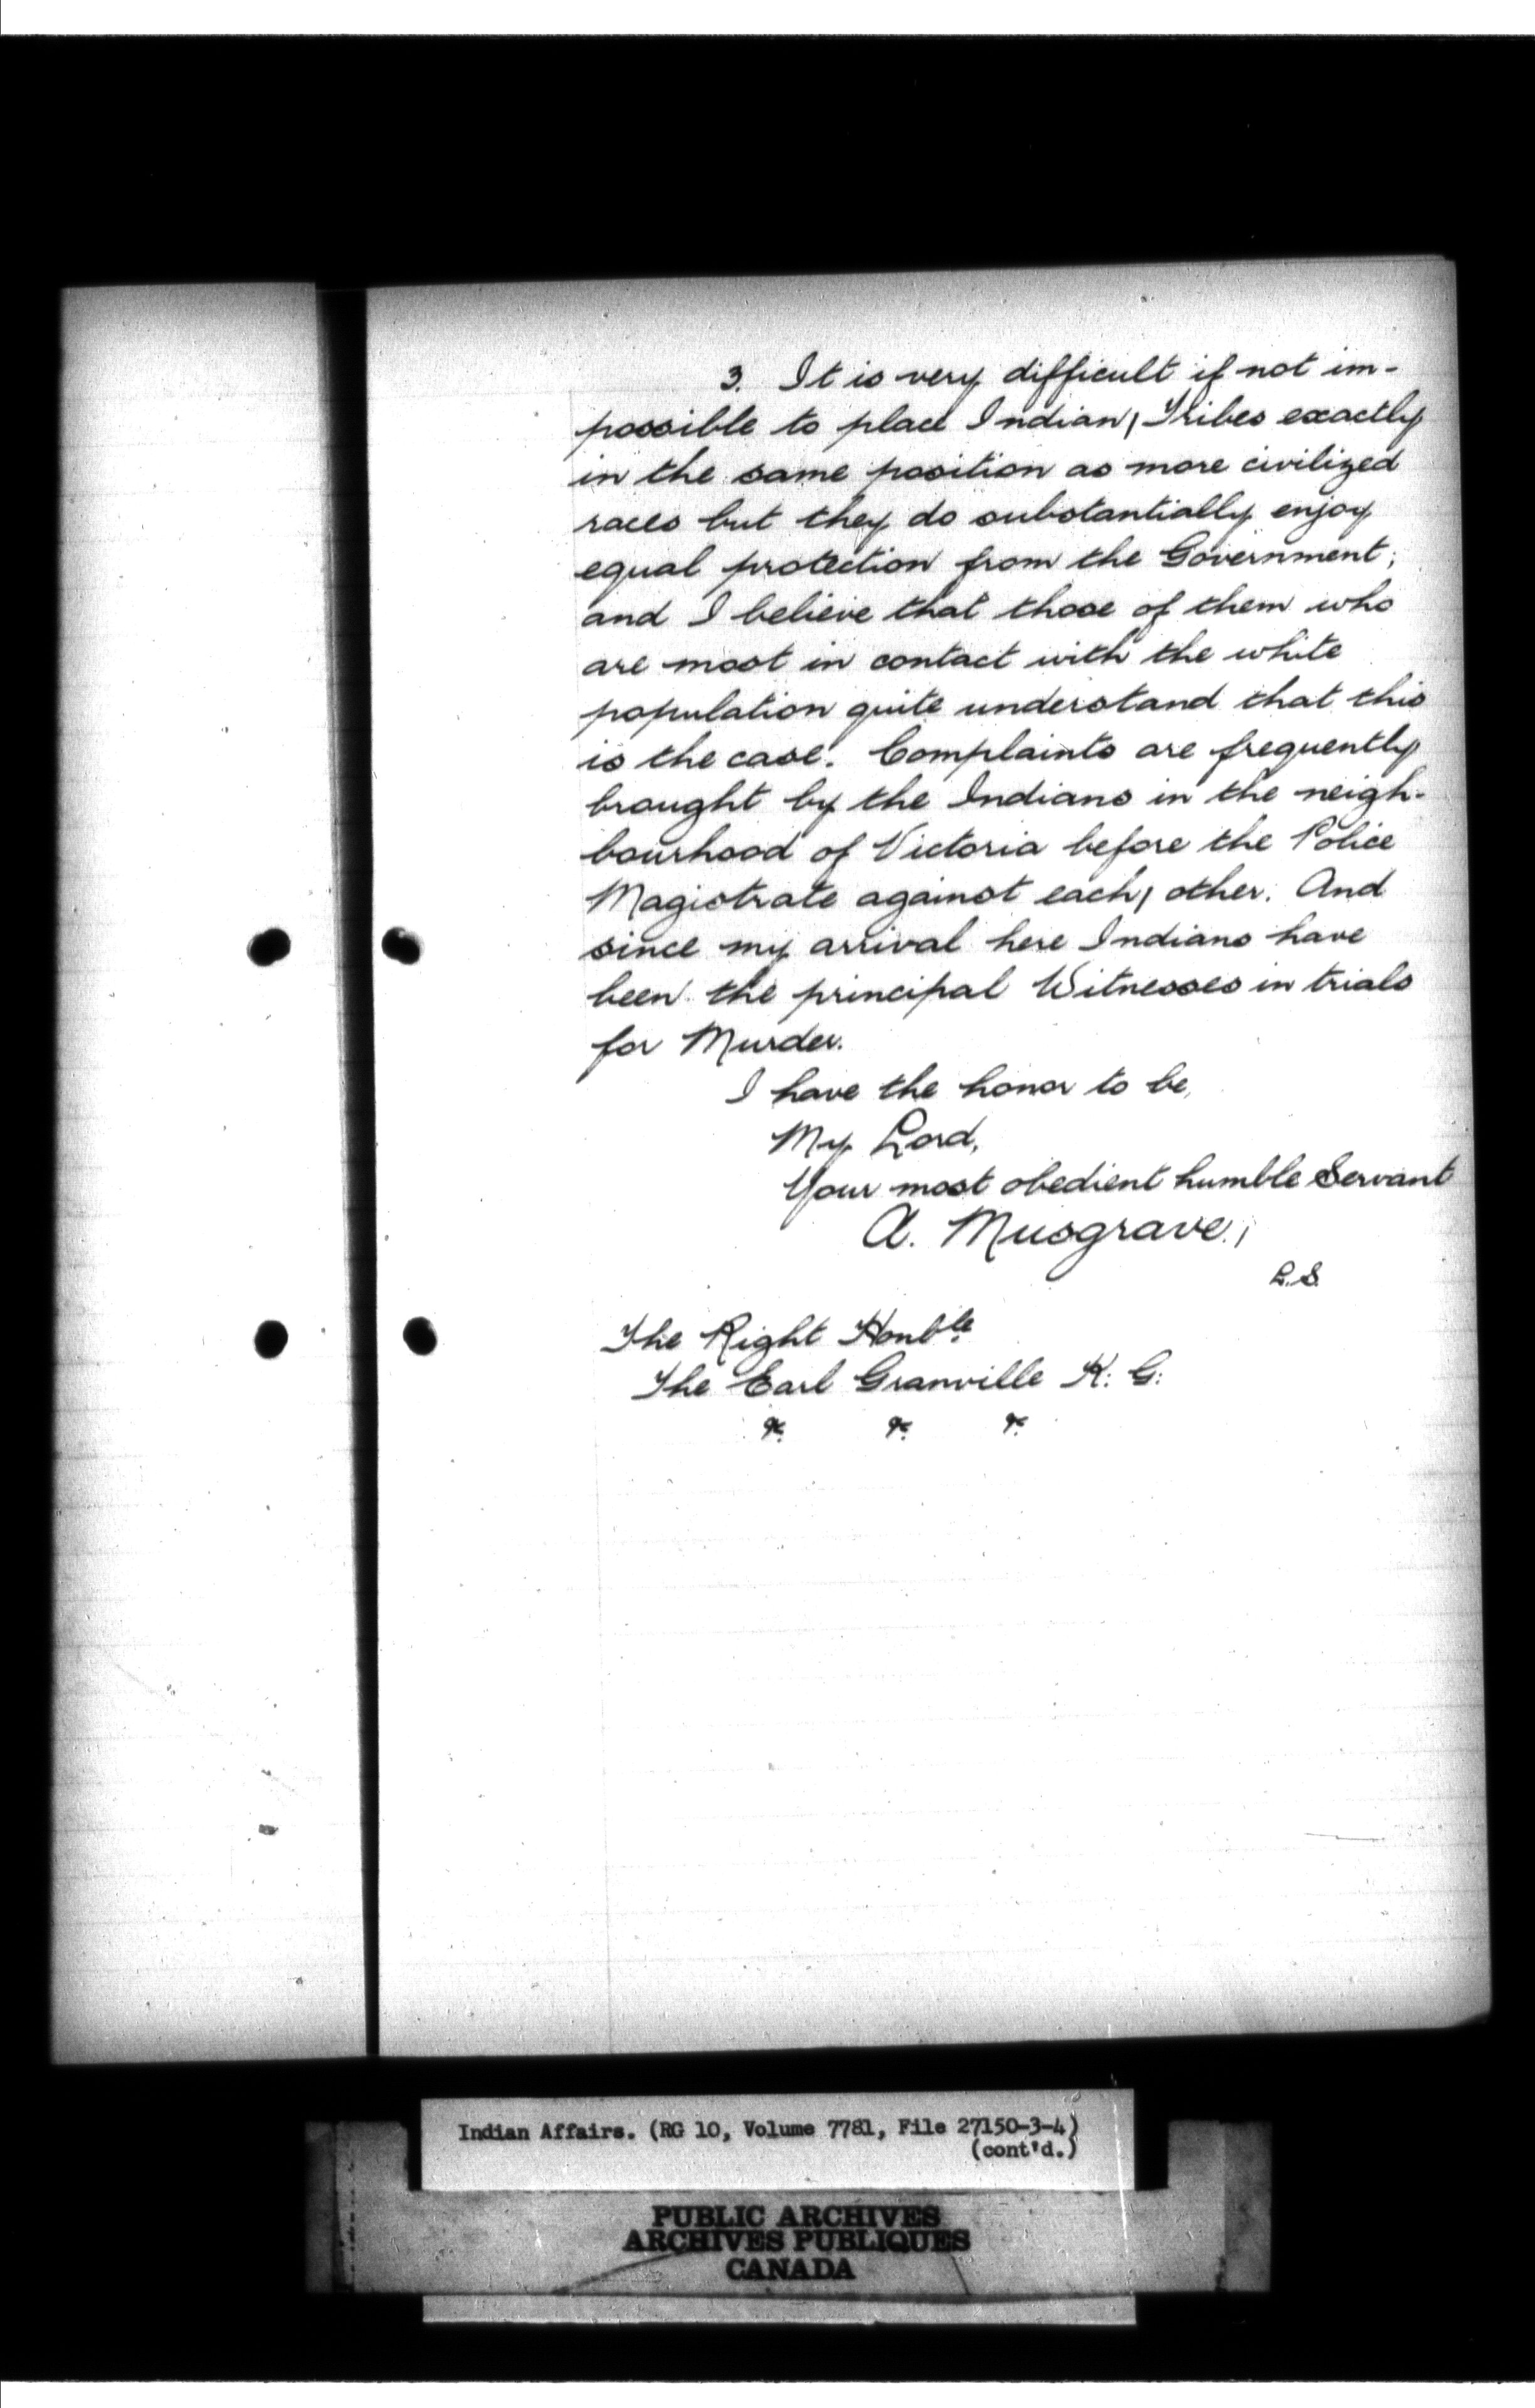 3. It is very difficult if not im-
possible to place Indian Tribes exactly
in the same position as more civilized
races but they do substantially enjoy
equal protection from the Government;
and I believe that those of them who
are most in contact with the white
population quite understand that this
is the case. Complaints are frequently
brought by the Indians in the neigh-
bourhood of Victoria before the Police
Magistrate against each other. And
since my arrival here Indians have
been the principal Witnesses in trials
for Murder.
I have the honor to be,
My Lord,
Your most obedient humble Servant
A. Musgrave.
L.S.
The Right Honble.
The Earl Granville K: G:
&c. &c. &c.
Indian Affairs. (RG 10, Volume 7781, File 27150-3-4)
(cont'd.)
PUBLIC ARCHIVES
ARCHIVES PUBLIQUES
CANADA